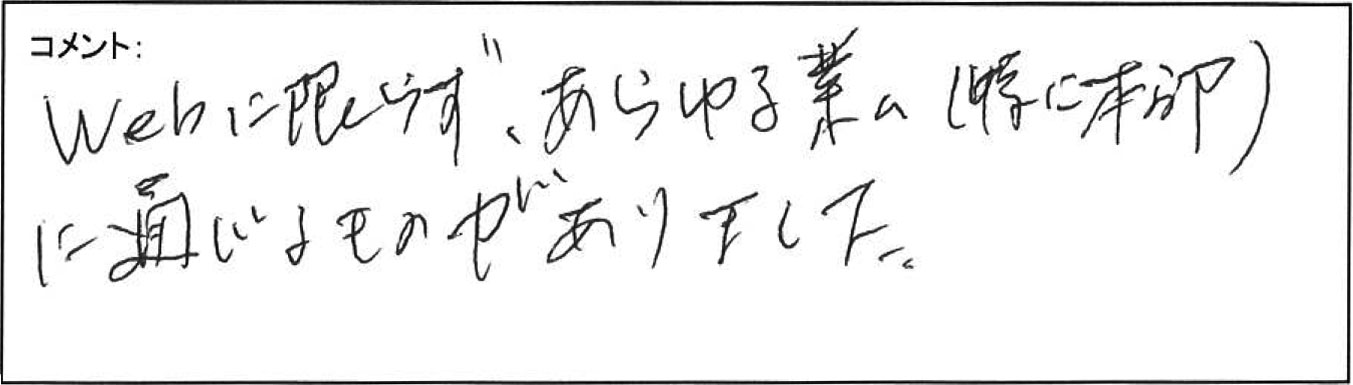 コメント:
Webに限らず、あらゆる業ム(特に本部)
に通じるものがありました。